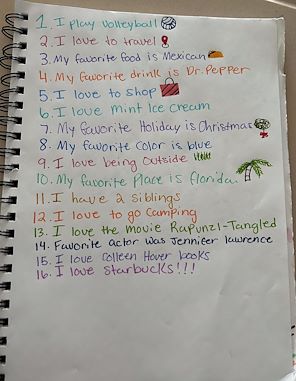 1. I play volleyball
2. I love to travel
3. My favorite food is Mexican
4. My favorite drink is Dr. Pepper
5. I love to shop
6. I love mint Ice cream
7. My favorite Holiday is Christmas
8. My favorite color is blue
9. I love being outside
10. My favorite Place is florida.
11. I have 2 siblings
12. I love to go camping
13. I love the movie Rapunzl-Tangled
14. Favorite actor was Jennifer lawrence
15. I love Colleen Hover books
16. I love Starbucks!!!